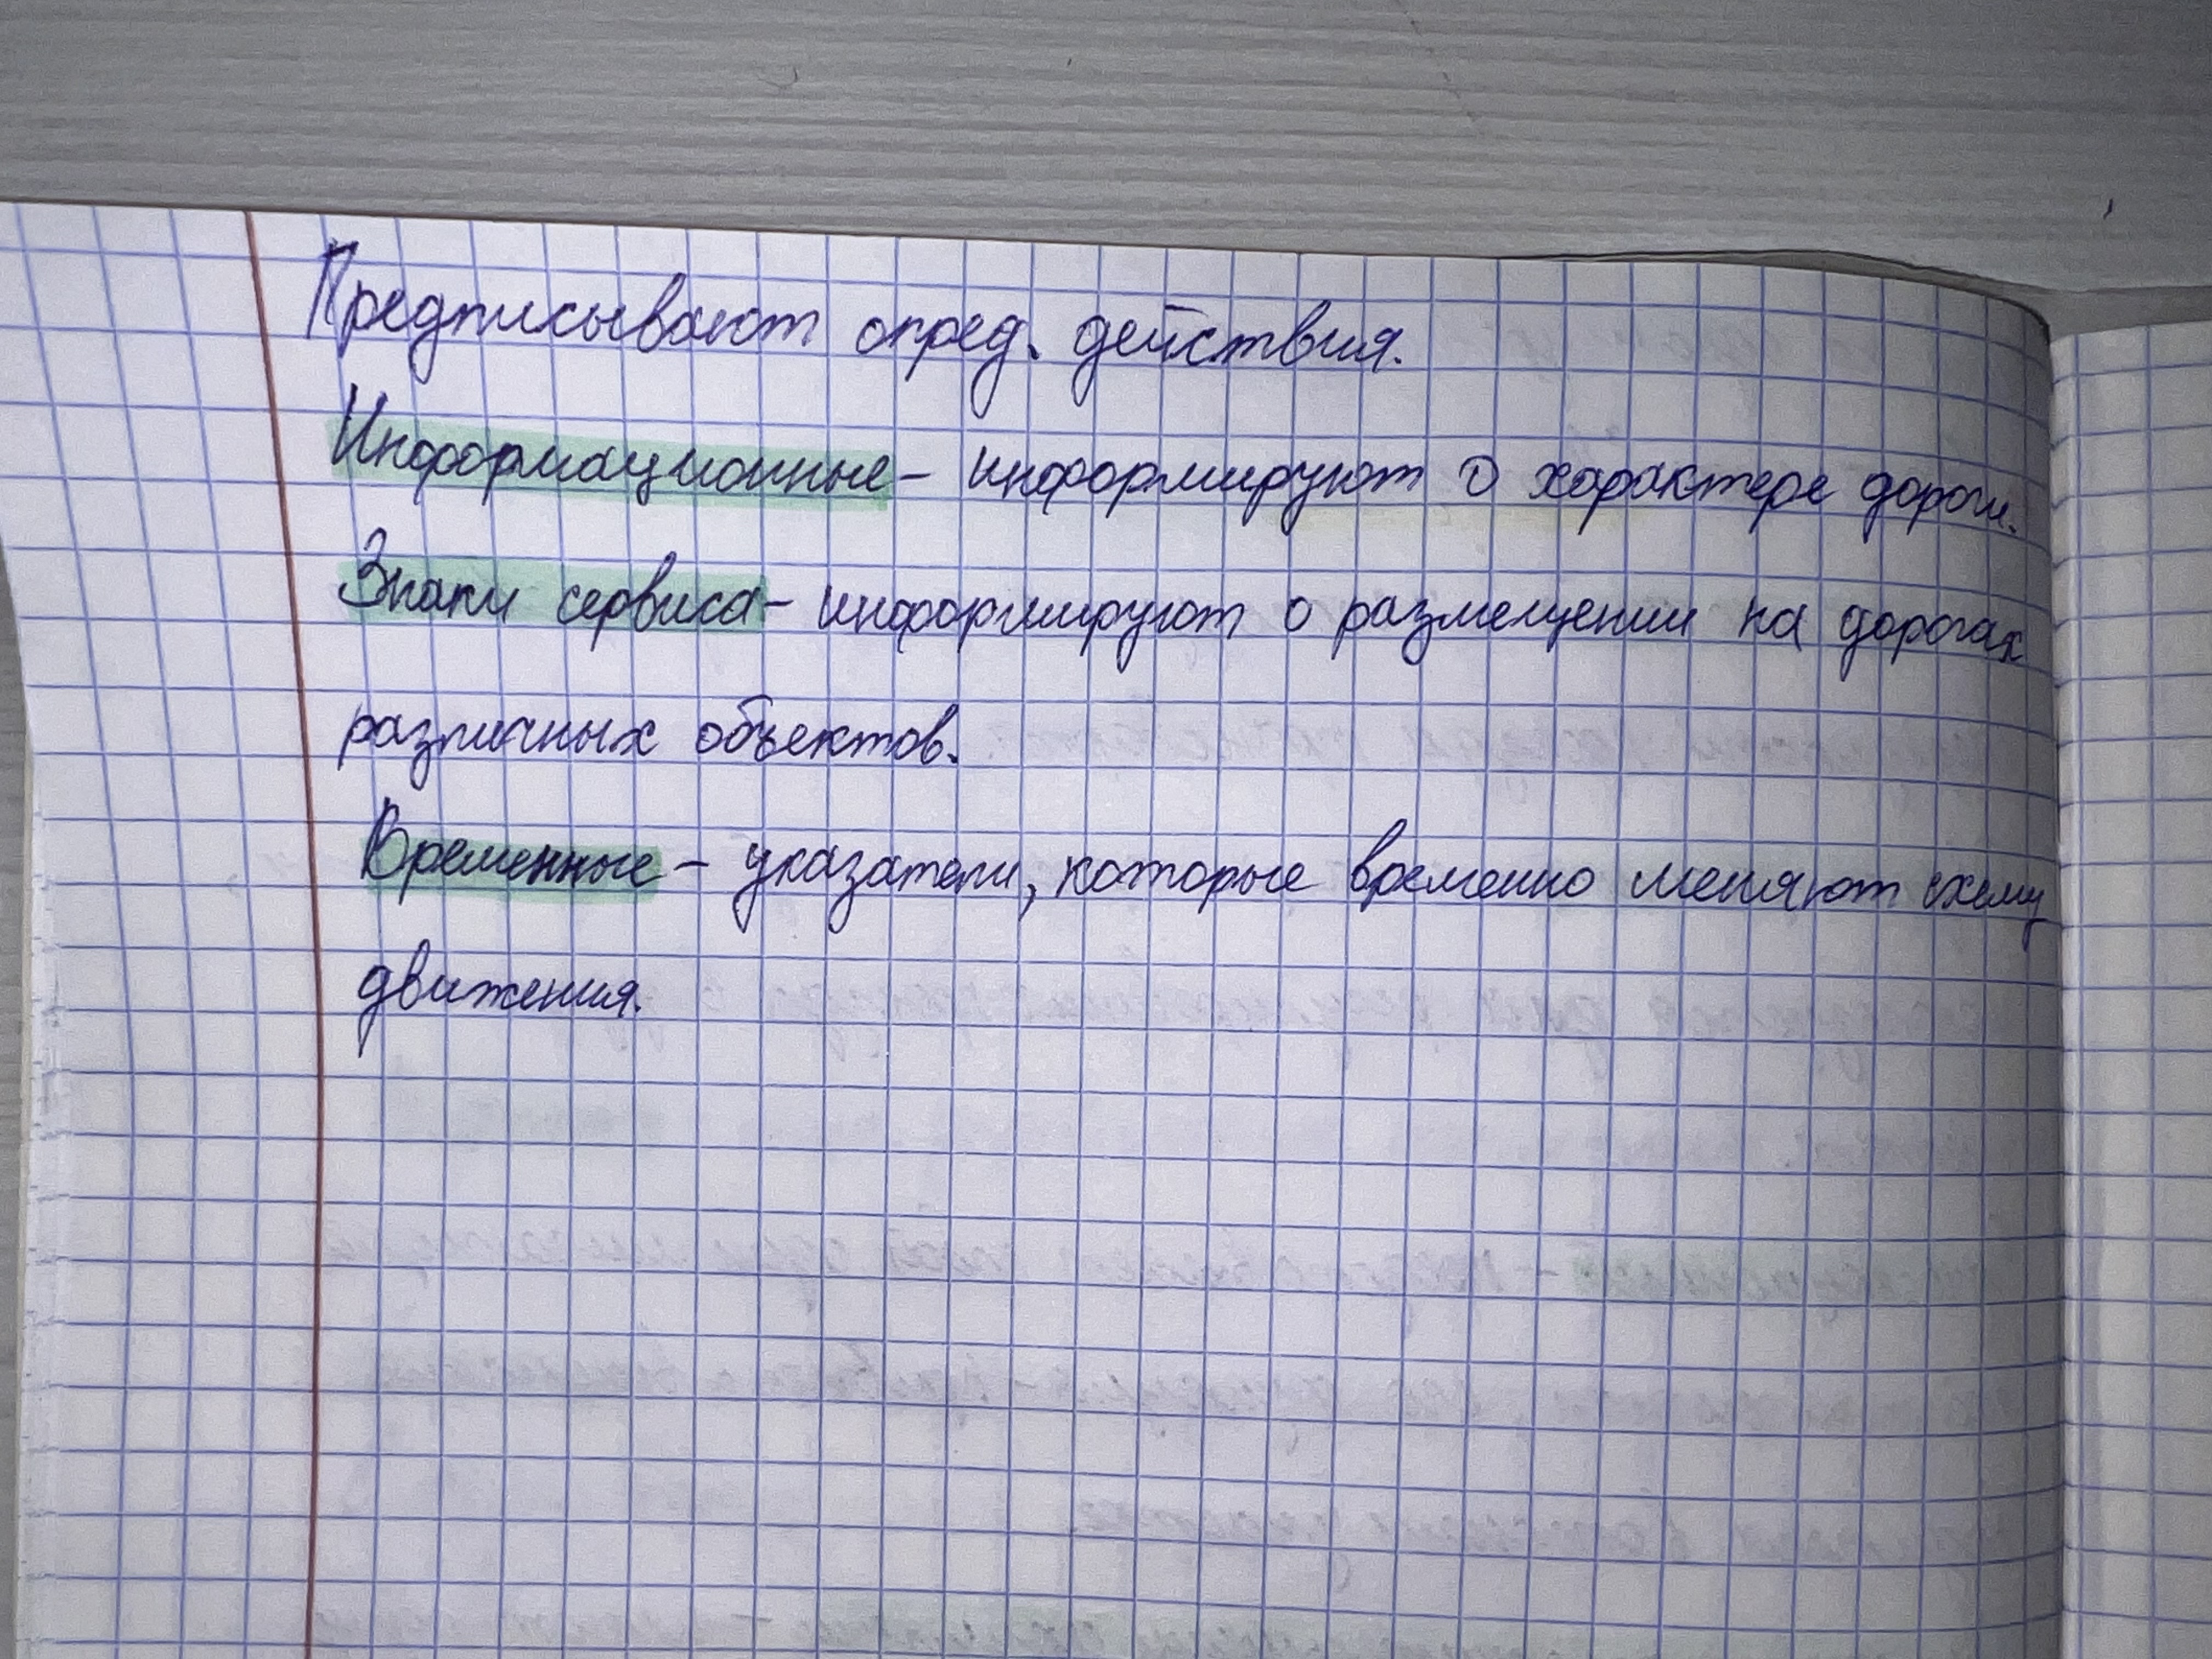 Предписывают опред. действия.
Информационные - информируют о характере дороги.
Знаки сервиса - информируют о размещении на дорогах
различных объектов.
Временные - указатели, которые временно меняют схему
движения.